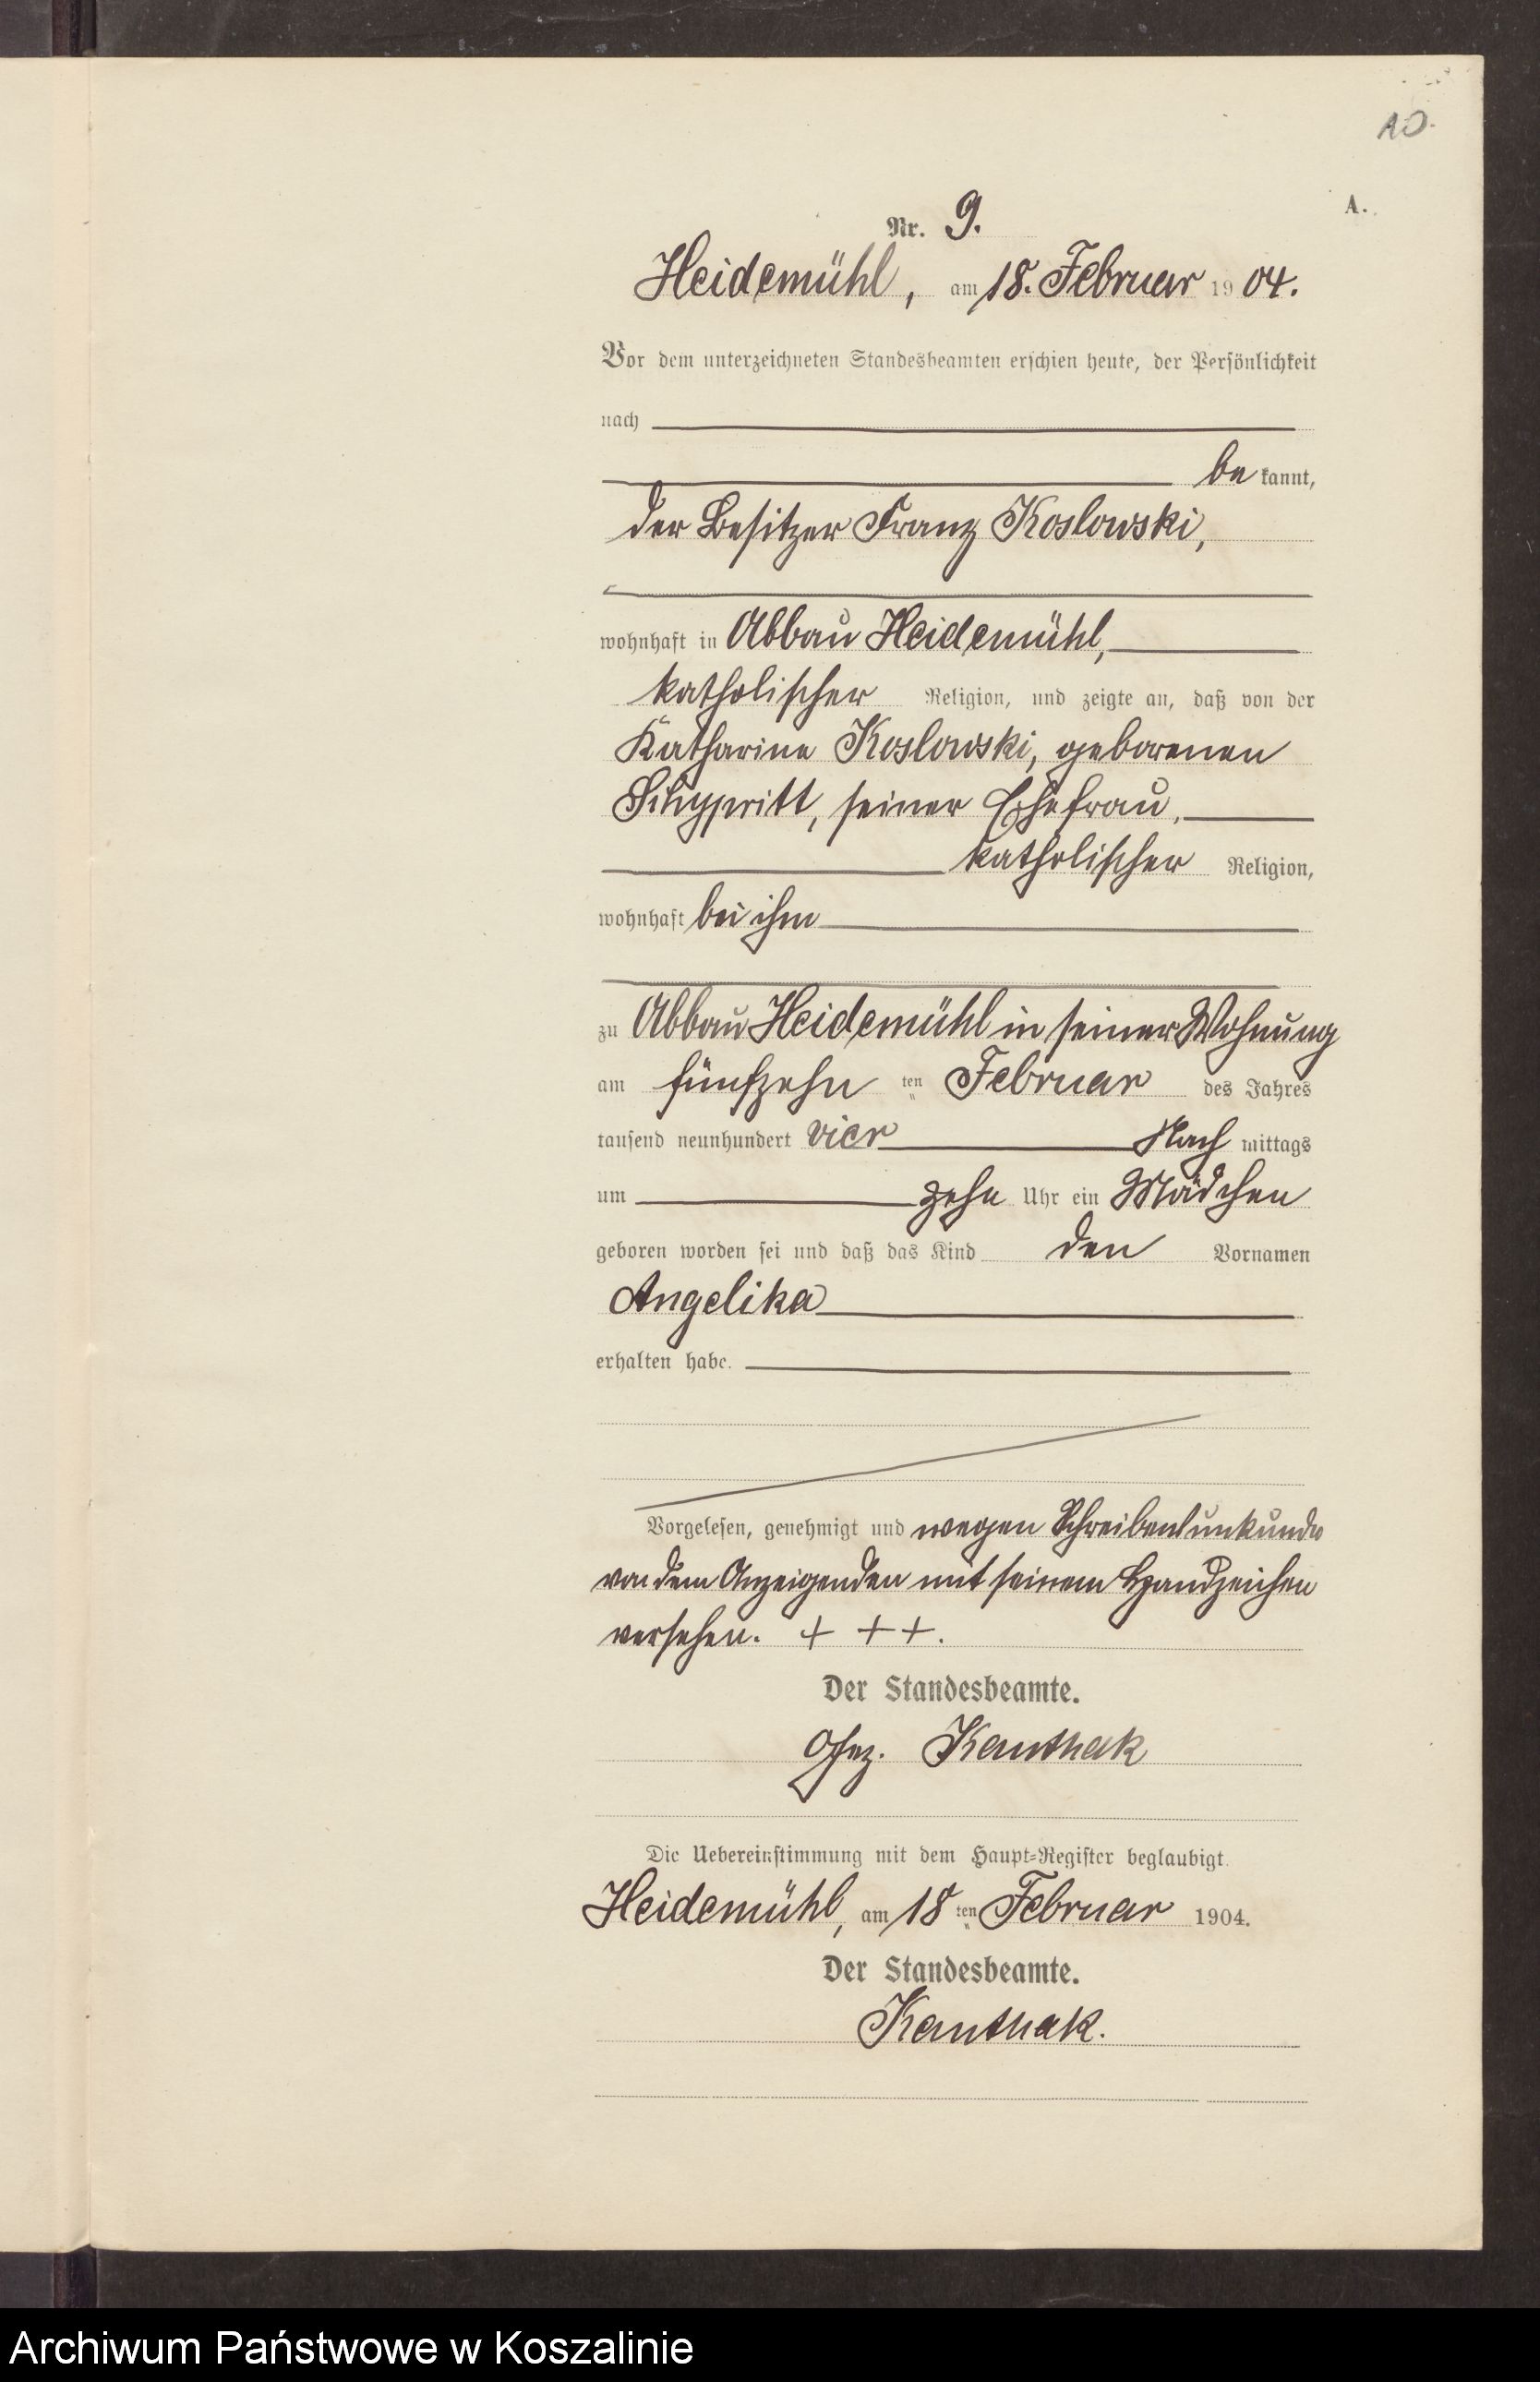 10.
A.
Nr. 9.
Heidemühl, am 18. Februar 1904.
Vor dem unterzeichneten Standesbeamten erschien heute, der Persönlichkeit
nach
be kannt,
der Besitzer Franz Koslowski,
wohnhaft in Abbau Heidemühl,
katholischer Religion, und zeigte an, daß von der
Katharine Koslowski, geborenen
seiner Ehefrau,
katholischer Religion,
wohnhaft bei ihm
zu Abbau Heidemühl in seiner Wohnung
am fünfzehn ten Februar des Jahres
tausend neunhundert vier Nach mittags
um zehn Uhr ein Mädchen
geboren worden sei und daß das Kind den Vornamen
Angelika
erhalten habe.
Vorgelesen, genehmigt und wegen Schreibensunkunde
von dem Anzeigenden mit seinem Handzeichen
versehen. + + +.
Der Standesbeamte.
Gez. Kanthak
Die Uebereinstimmung mit dem Haupt-Register beglaubigt
Heidemühl, am 18 ten Februar 1904.
Der Standesbeamte.
Kanthak.
Archiwum Państwowe w Koszalinie